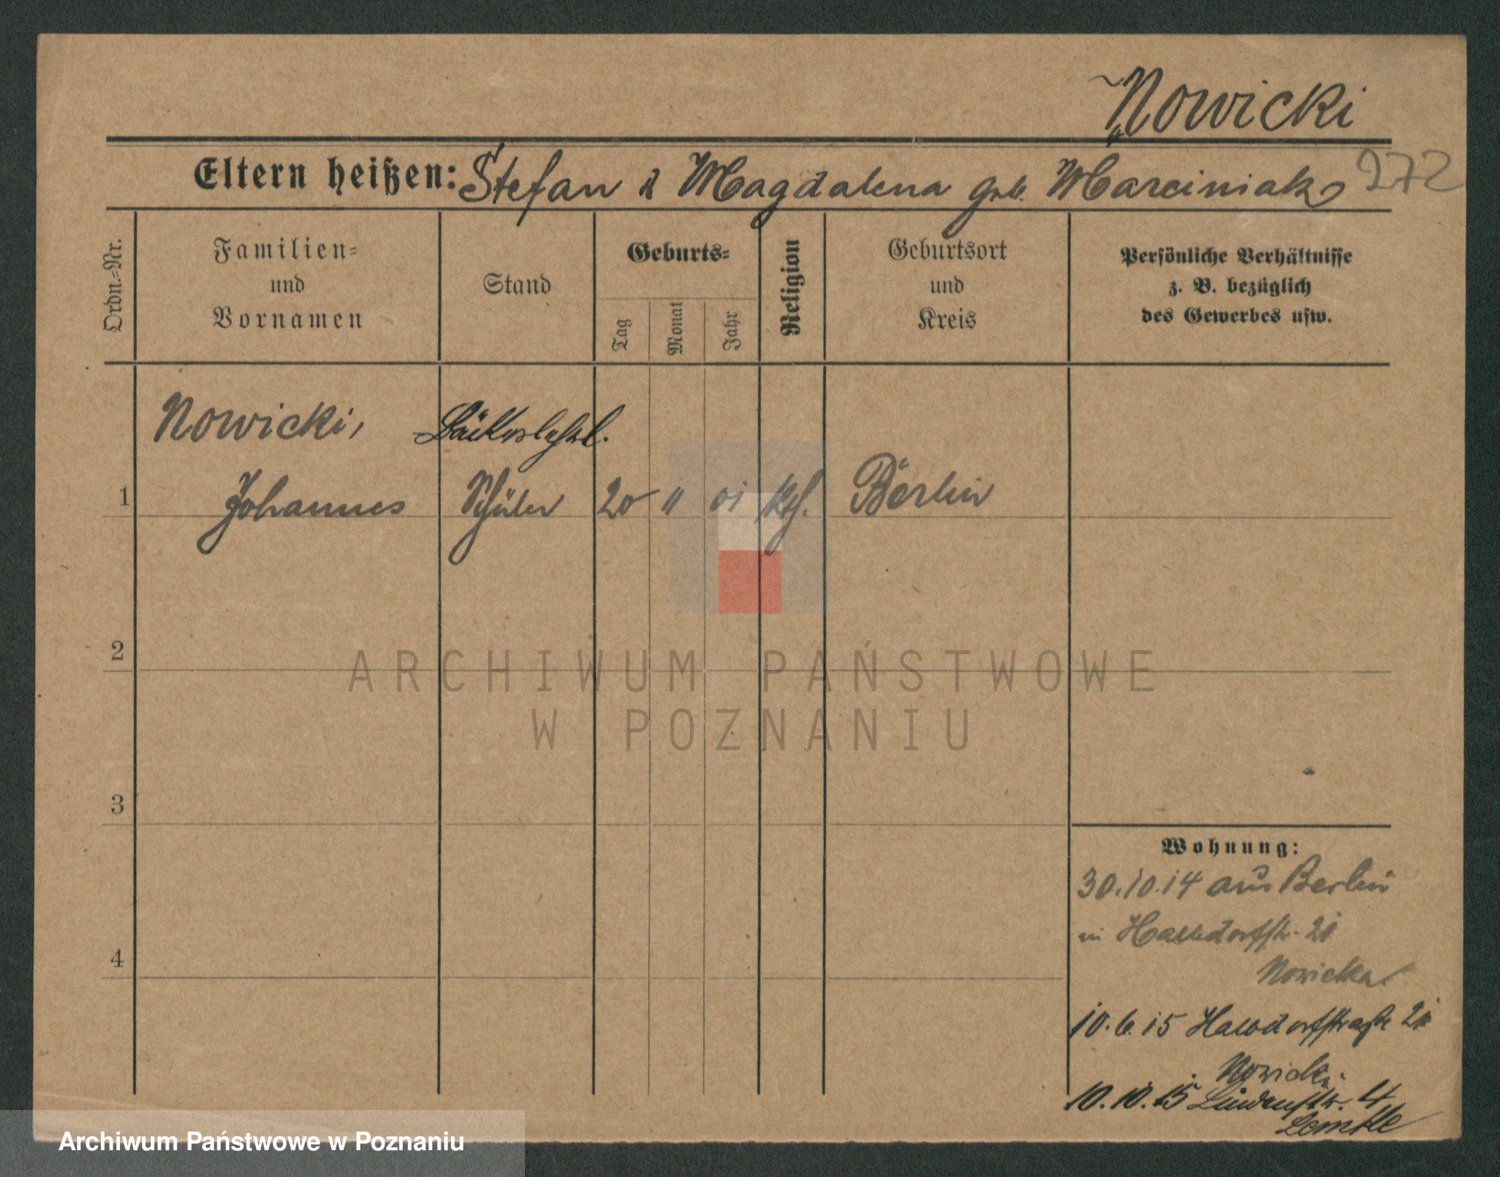 Nowicki
Eltern heißen: Stefan & Magdalena geb. Marciniak 272
Ordn.-Nr.
Familien-
und
Vornamen
Stand
Geburts-
Tag
Monat
Jahr
Religion
Geburtsort
und
Kreis
Persönliche Verhältnisse
z. B. bezüglich
des Gewerbes usw.
Nowicki, Bäckerlehrl.
1 Johannes Schüler 20 11 01 kth. Berlin
2
ARCHIWUM PAŃSTWOWE
W POZNANIU
3
Wohnung:
30.10.14 aus Berlin
in Halbdorfstr. 21
Nowicka
4
10.6.15 Halbdorfstraße 21
Nowicki
10.10.15 Lindenstr. 4
Lemke
Archiwum Państwowe w Poznaniu